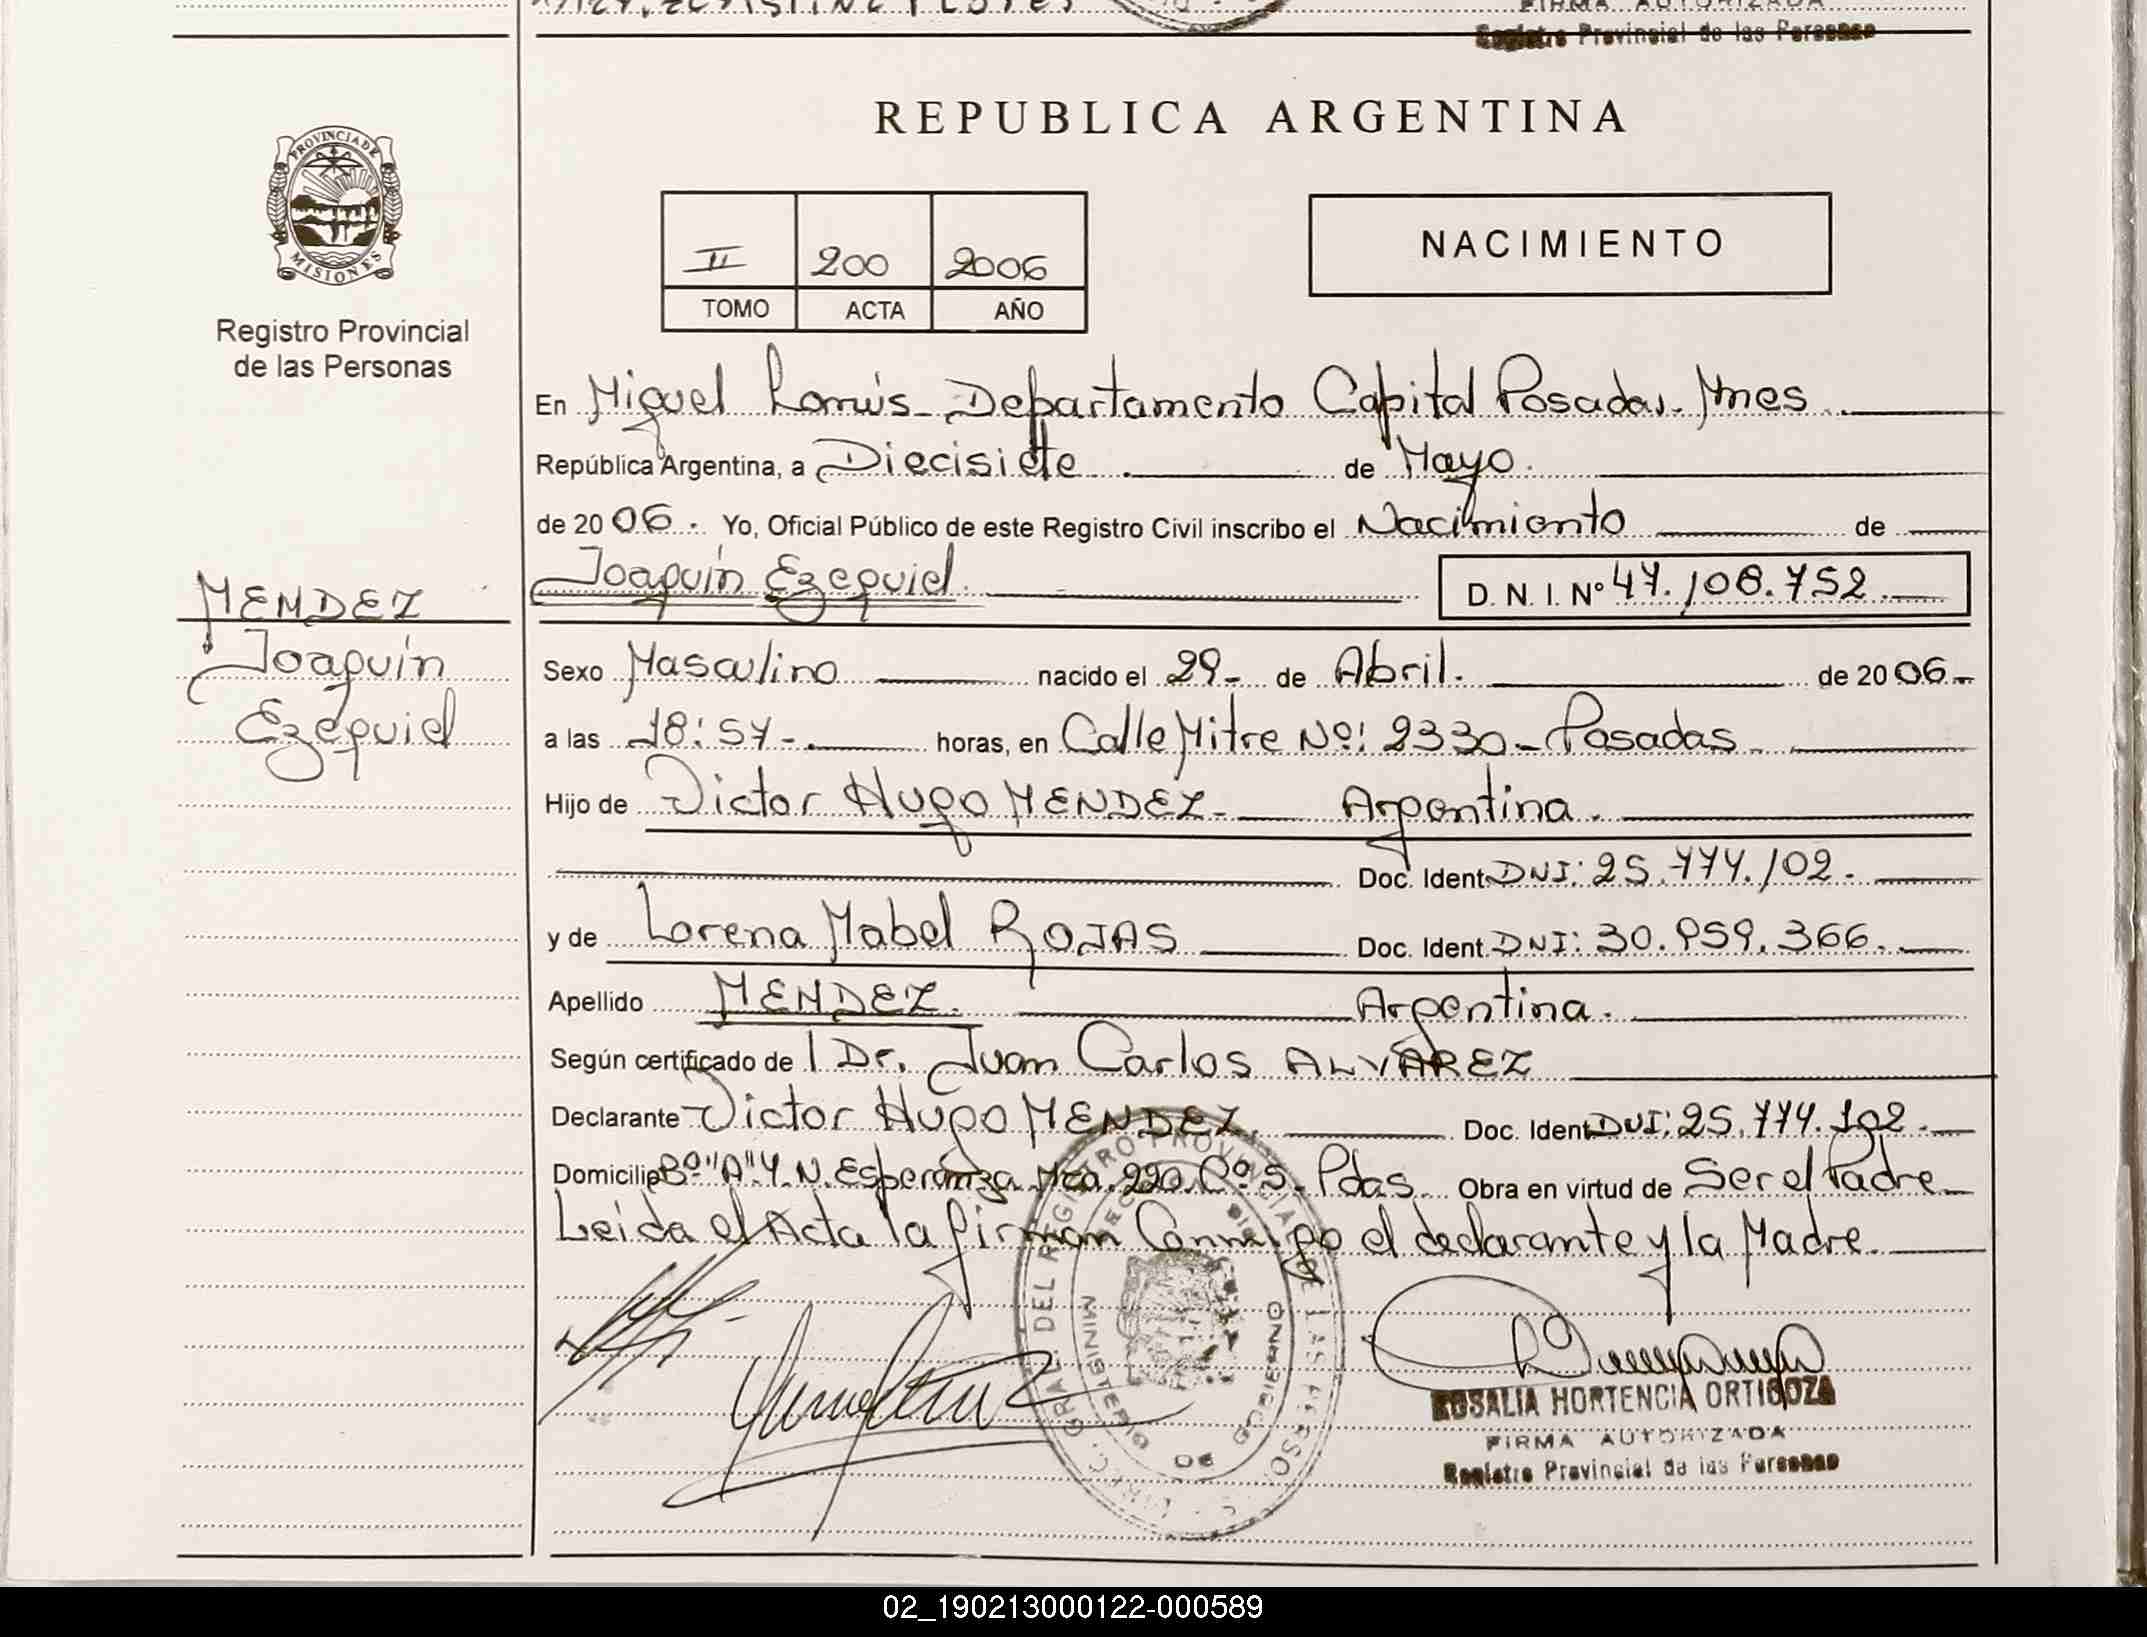 Registro Provincial de las Personas
REPUBLICA ARGENTINA
PROVINCIA DE MISIONES
Registro Provincial
de las Personas
II 200 2006
TOMO ACTA AÑO
NACIMIENTO
En Miguel Lanús - Departamento Capital Posadas - Mnes
República Argentina, a Diecisiete . de Mayo.
de 2006. Yo, Oficial Público de este Registro Civil inscribo el Nacimiento de
Joaquín Ezequiel. D. N. I. Nº 47.108.752
MENDEZ
Joaquín
Ezequiel
Sexo Masculino nacido el 29 - de Abril. de 2006 -
a las 18:57 - horas, en Calle Mitre Nº: 2330 - Posadas
Hijo de Victor Hugo MENDEZ - Argentina.
Doc. Ident. DNI: 25.774.102.
y de Lorena Mabel ROJAS Doc. Ident. DNI: 30.959.366.
Apellido MENDEZ. Argentina.
Según certificado de l Dr. Juan Carlos ALVAREZ
Declarante Victor Hugo MENDEZ. Doc. Ident. DNI: 25.774.102.
Domicilio Bº "A" Y. N. Esperanza Mza. 220. Cº 5 - Pdas. Obra en virtud de Ser el Padre
Leida el Acta la firman Conmigo el declarante y la Madre.
DEL REGISTRO PROVINCIAL DE LAS PERSONAS
MINISTERIO DE GOBIERNO
ROSALIA HORTENCIA ORTIGOZA
FIRMA AUTORIZADA
Registro Provincial de las Personas
02_190213000122-000589